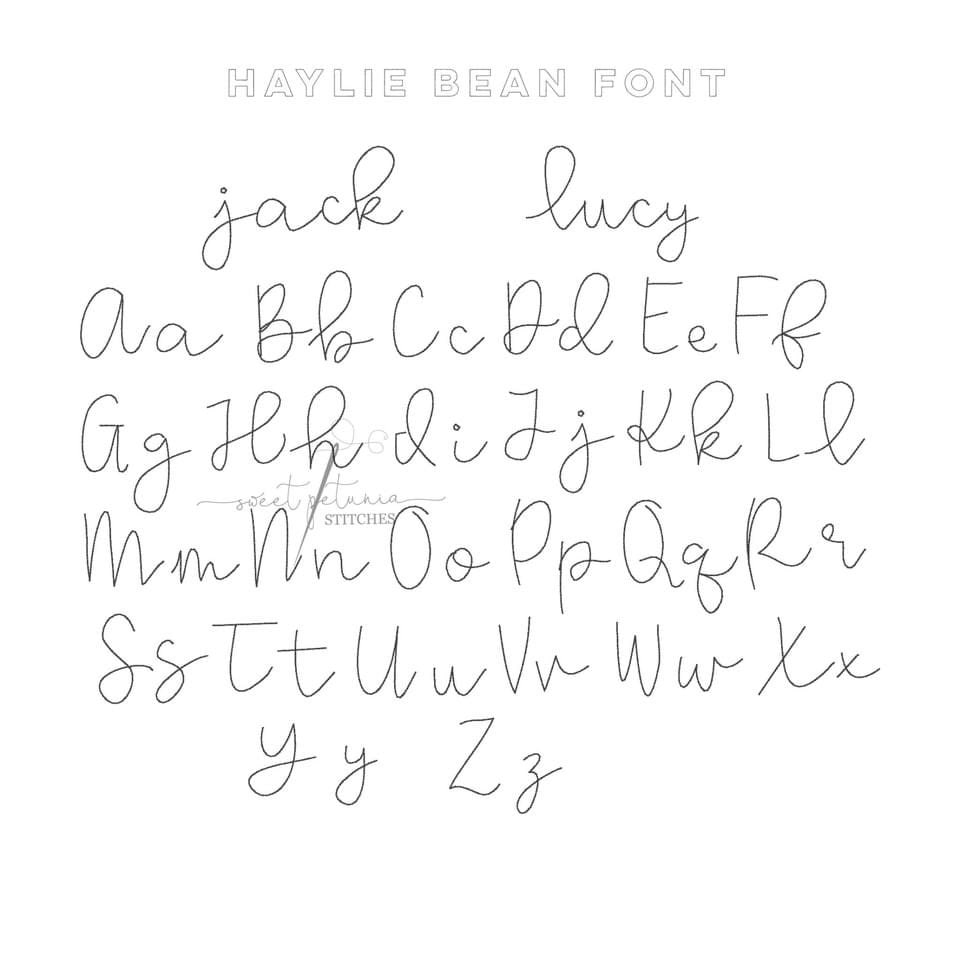 HAYLIE BEAN FONT
jack lucy
Aa Bb Cc Dd Ee Ff
Gg Hh Ii Jj Kk Ll
sweet petunia
STITCHES
Mm Nn Oo Pp Qq Rr
Ss Tt Uu Vv Ww Xx
Yy Zz